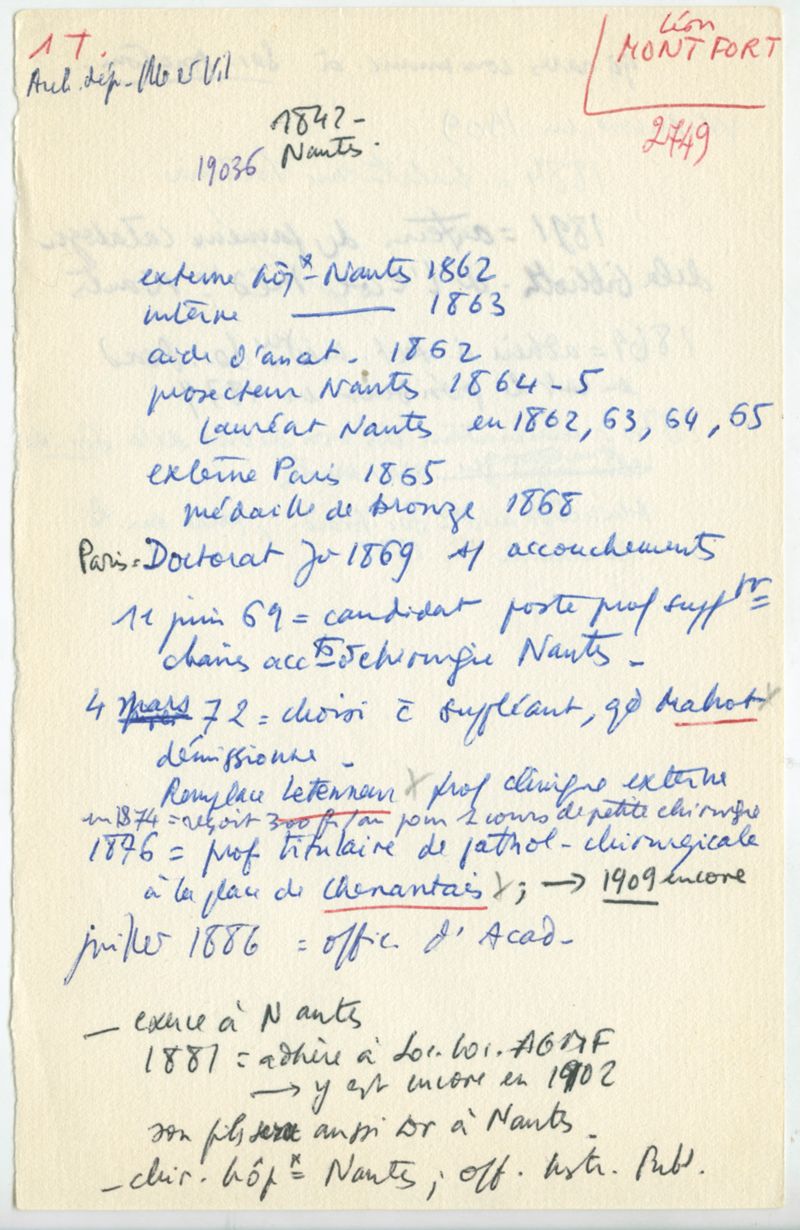 1T.
Léon
MONTFORT
2749
Arch. dép.
1842-
Nantes.
19036
externe hôpx - Nantes 1862
interne ——— 1863
aide d'anat. 1862
prosecteur Nantes 1864-5
Lauréat Nantes en 1862, 63, 64, 65
externe Paris 1865
médaille de bronze 1868
Paris = Doctorat Jr 1869 s/ accouchements
11 juin 69 = candidat poste prof supptr
chaires accts & chirurgie Nantes -
4 mars 72 = choisi c suppléant, qd Mahot x
démissionne -
Remplace Letenneur x prof clinique externe
en 1874 = reçoit 300 fr/an pour 1 cours de petite chirurgie
1876 = prof titulaire de pathol-chirurgicale
à la place de Chenantais x ; → 1909 encore
juillet 1886 = offic. d'Acad-
- exerce à Nantes
1881 = adhère à Soc. loc. AGMF
→ y est encore en 1902
son fils sera aussi Dr à Nantes -
- chir. hôpx Nantes ; off. Instr. Publ.